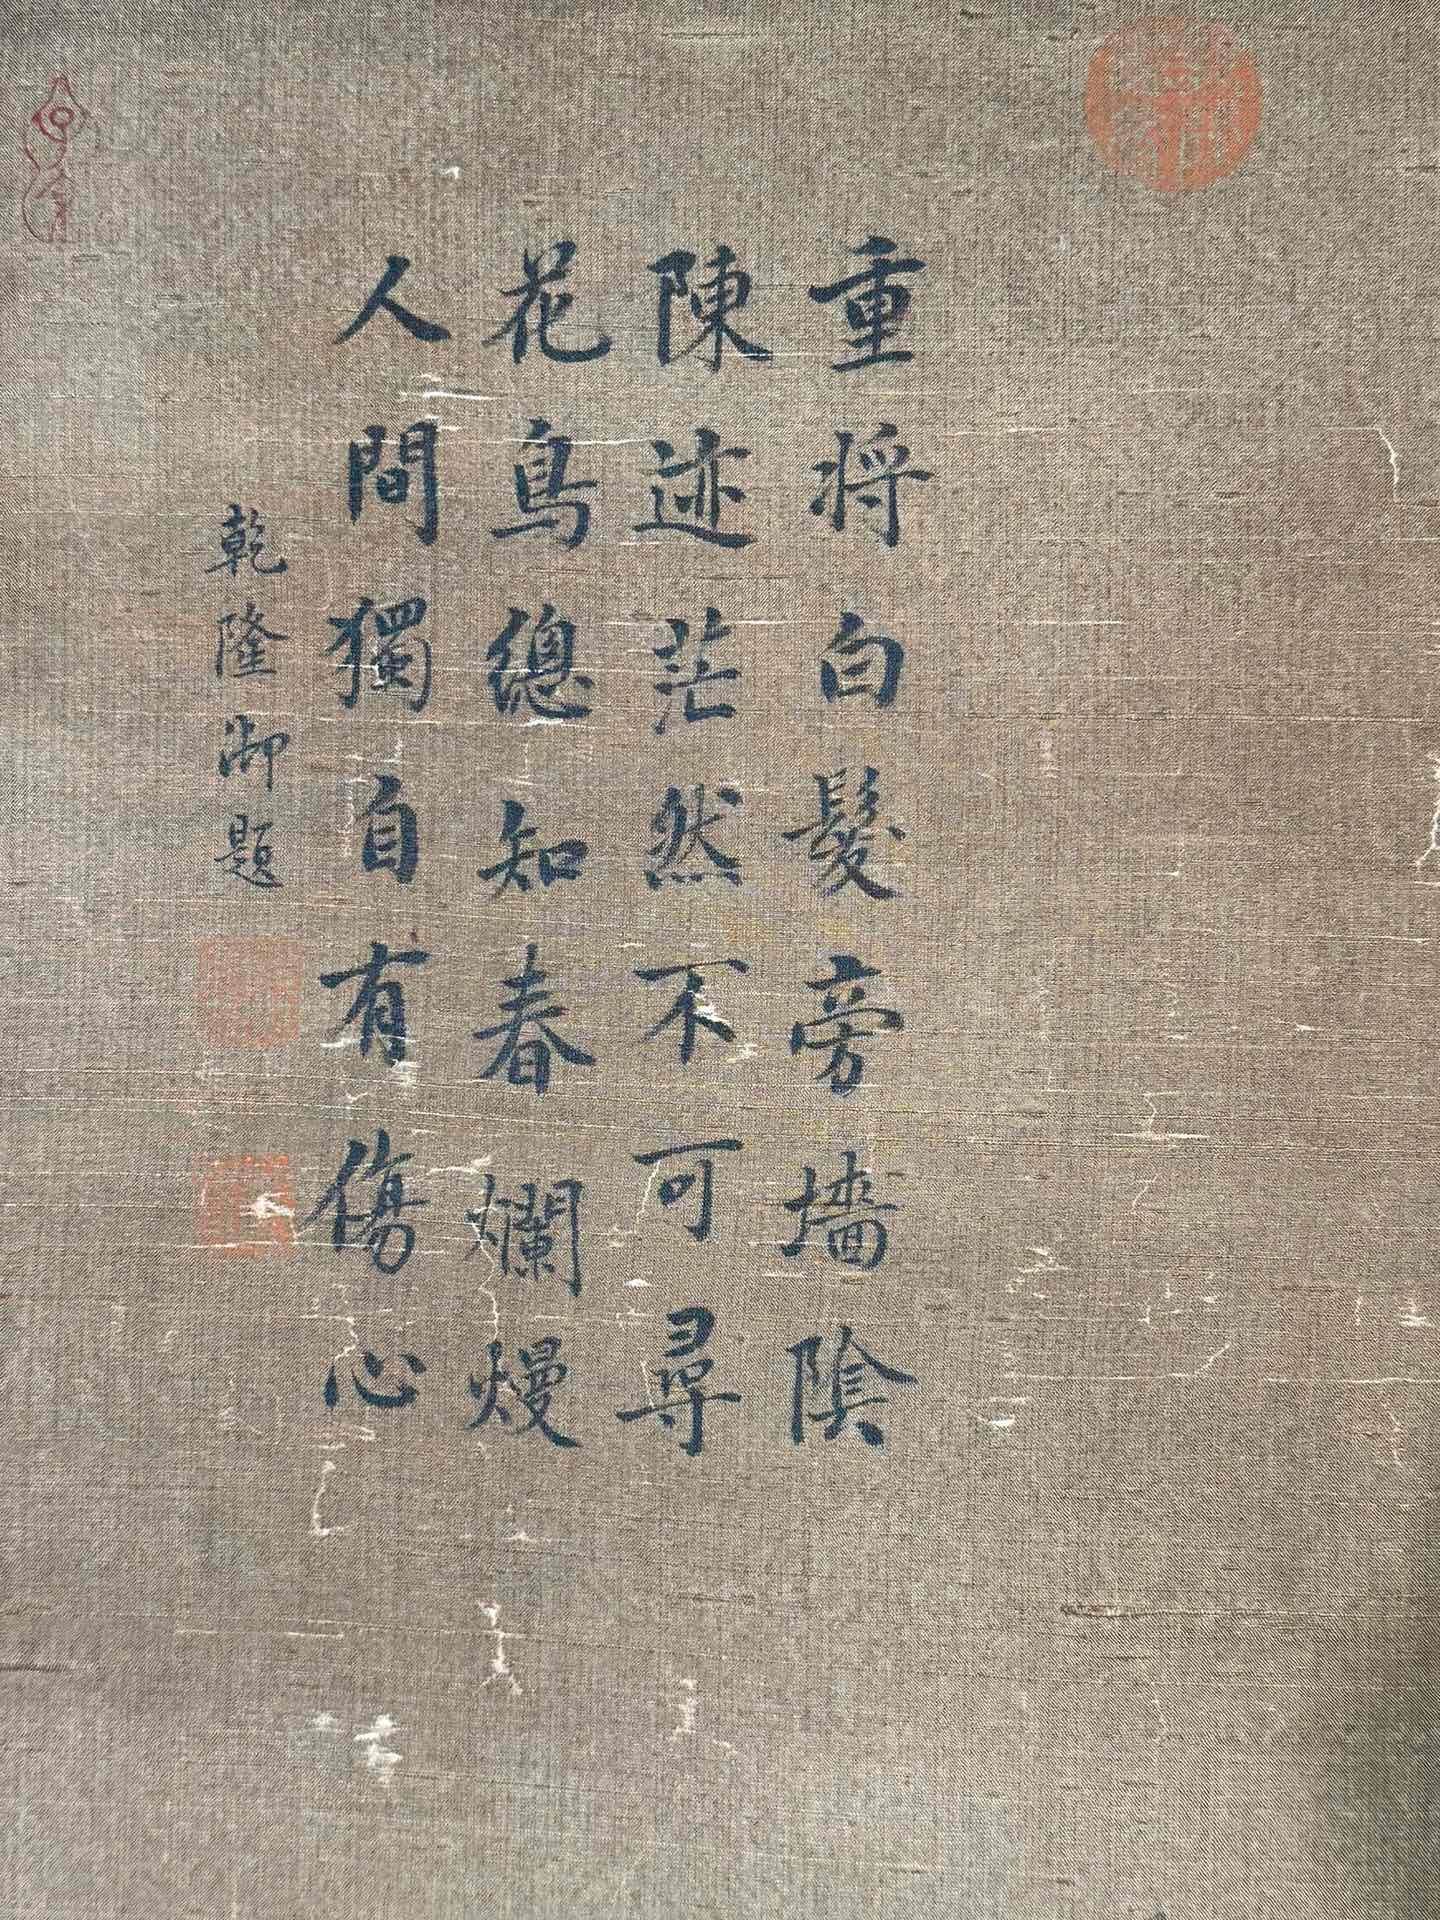 重將白髮旁墻陰
陳迹茫然不可尋
花鳥總知春爛熳
人間獨自有傷心
乾隆御題